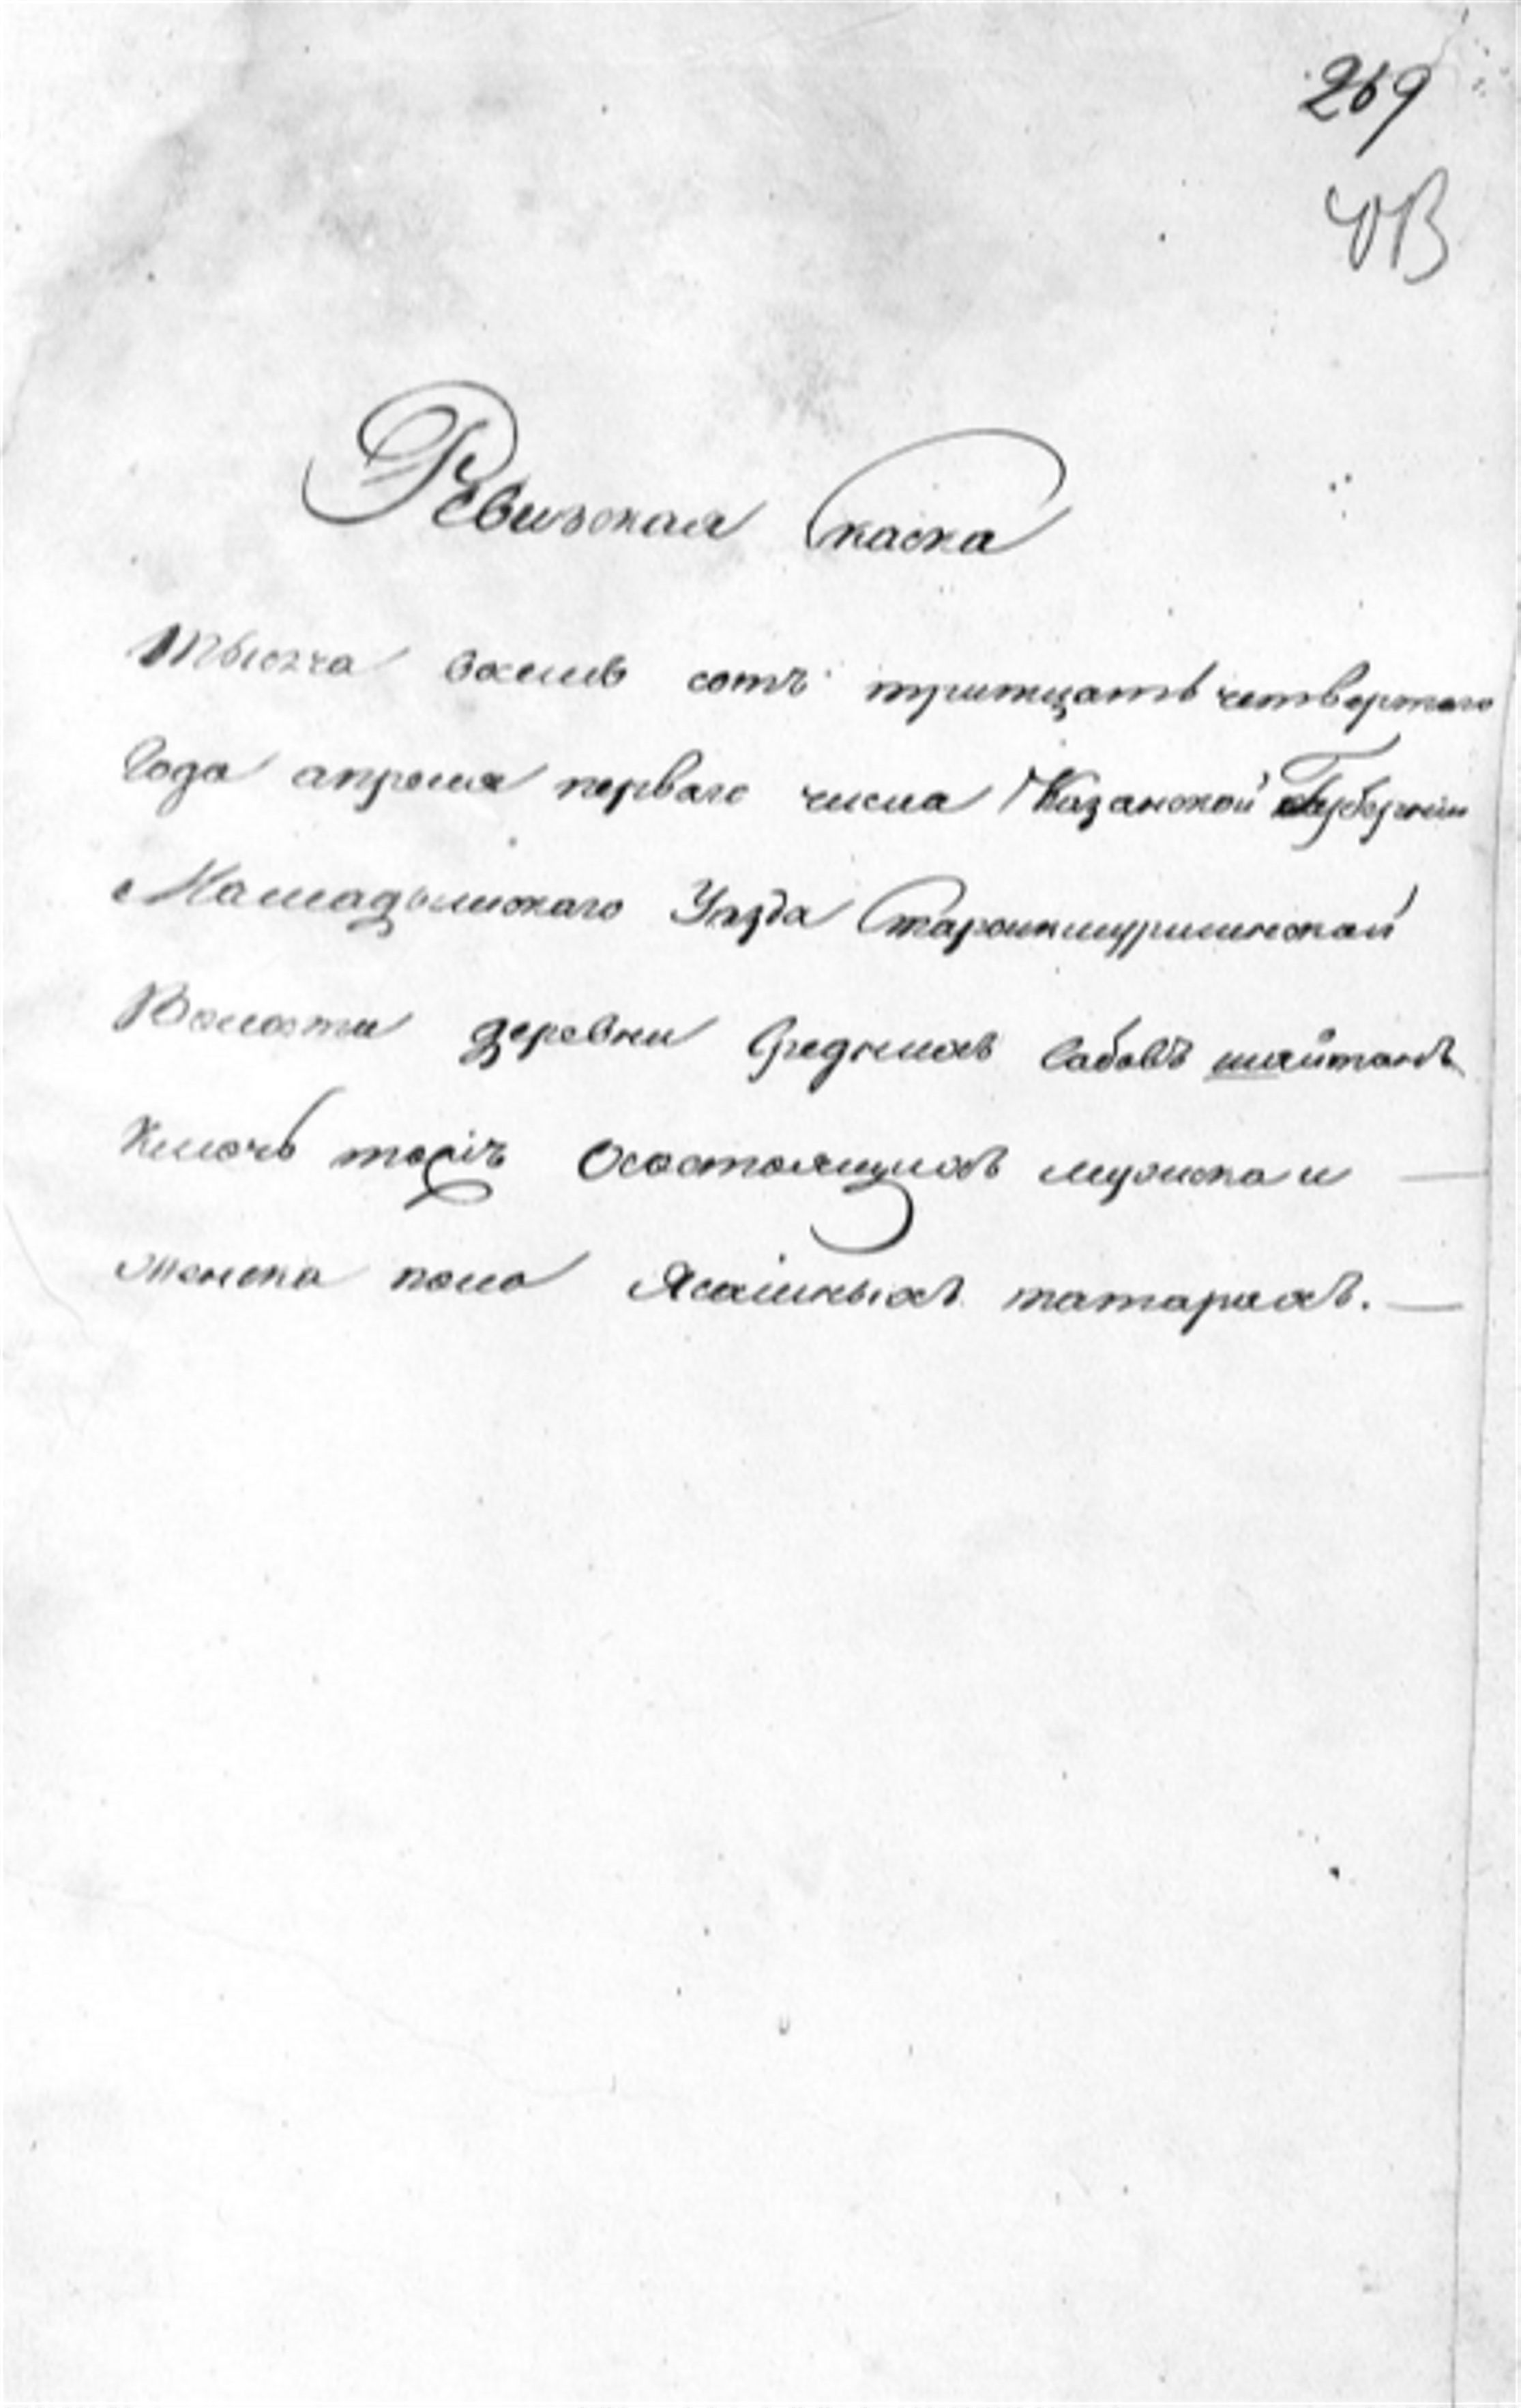 269
Ревизская Скаска
Тысяча восемь сотъ тритцать четвертаго
Года апреля перваго числа Казанской Губернии
Мамадышскаго Уезда Староикшурминской
Волости деревни Средних Сабовъ шайтанъ
Ключь тожъ Осостоящихъ мужска и
женска пола Ясашныхъ татарахъ.